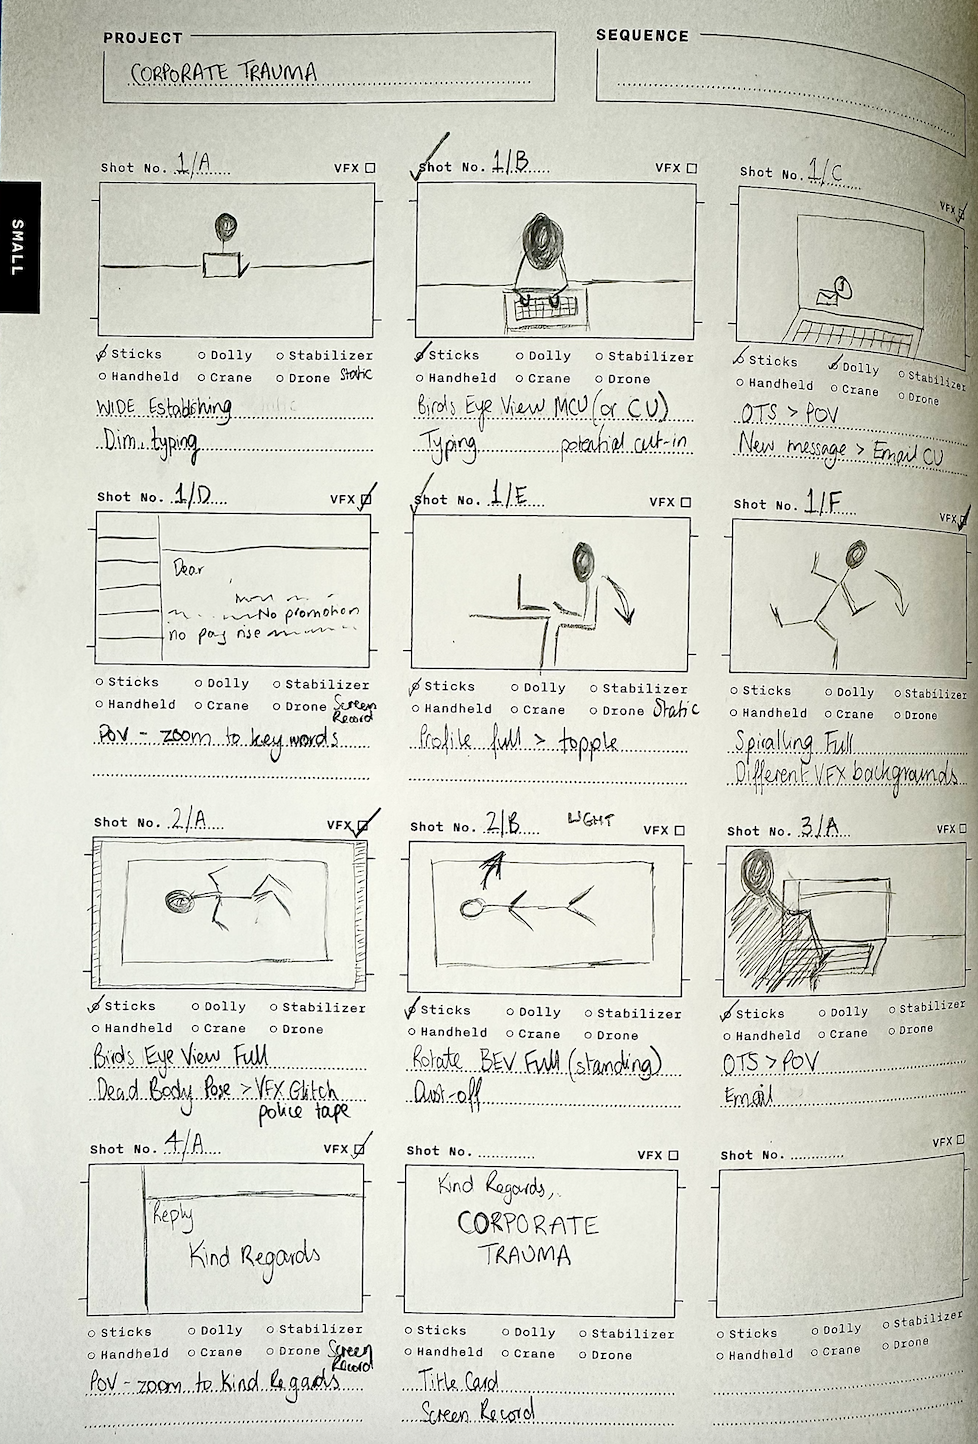 PROJECT
CORPORATE TRAUMA
SEQUENCE
SMALL
Shot No. 1/A VFX
Sticks Dolly Stabilizer
Handheld Crane Drone Static
WIDE Establishing
Dim, typing
Shot No. 1/B VFX
Sticks Dolly Stabilizer
Handheld Crane Drone
Birds Eye View MCU (or CU)
Typing potential cut-in
Shot No. 1/C VFX
1
Sticks Dolly Stabilizer
Handheld Crane Drone
OTS > POV
New message > Email CU
Shot No. 1/D VFX
Dear
No promotion
no pay rise
Sticks Dolly Stabilizer
Handheld Crane Drone Screen
Record
POV - zoom to key words
Shot No. 1/E VFX
Sticks Dolly Stabilizer
Handheld Crane Drone Static
Profile full > topple
Shot No. 1/F VFX
Sticks Dolly Stabilizer
Handheld Crane Drone
Spiralling Full
Different VFX backgrounds
Shot No. 2/A VFX
Sticks Dolly Stabilizer
Handheld Crane Drone
Birds Eye View Full
Dead Body Pose > VFX Glitch
police tape
Shot No. 2/B LIGHT VFX
Sticks Dolly Stabilizer
Handheld Crane Drone
Rotate BEV Full (standing)
Dust-off
Shot No. 3/A VFX
Sticks Dolly Stabilizer
Handheld Crane Drone
OTS > POV
Email
Shot No. 4/A VFX
Reply
Kind Regards
Sticks Dolly Stabilizer
Handheld Crane Drone Screen
Record
POV - zoom to Kind Regards
Shot No. VFX
Kind Regards,
CORPORATE
TRAUMA
Sticks Dolly Stabilizer
Handheld Crane Drone
Title Card
Screen Record
Shot No. VFX
Sticks Dolly Stabilizer
Handheld Crane Drone